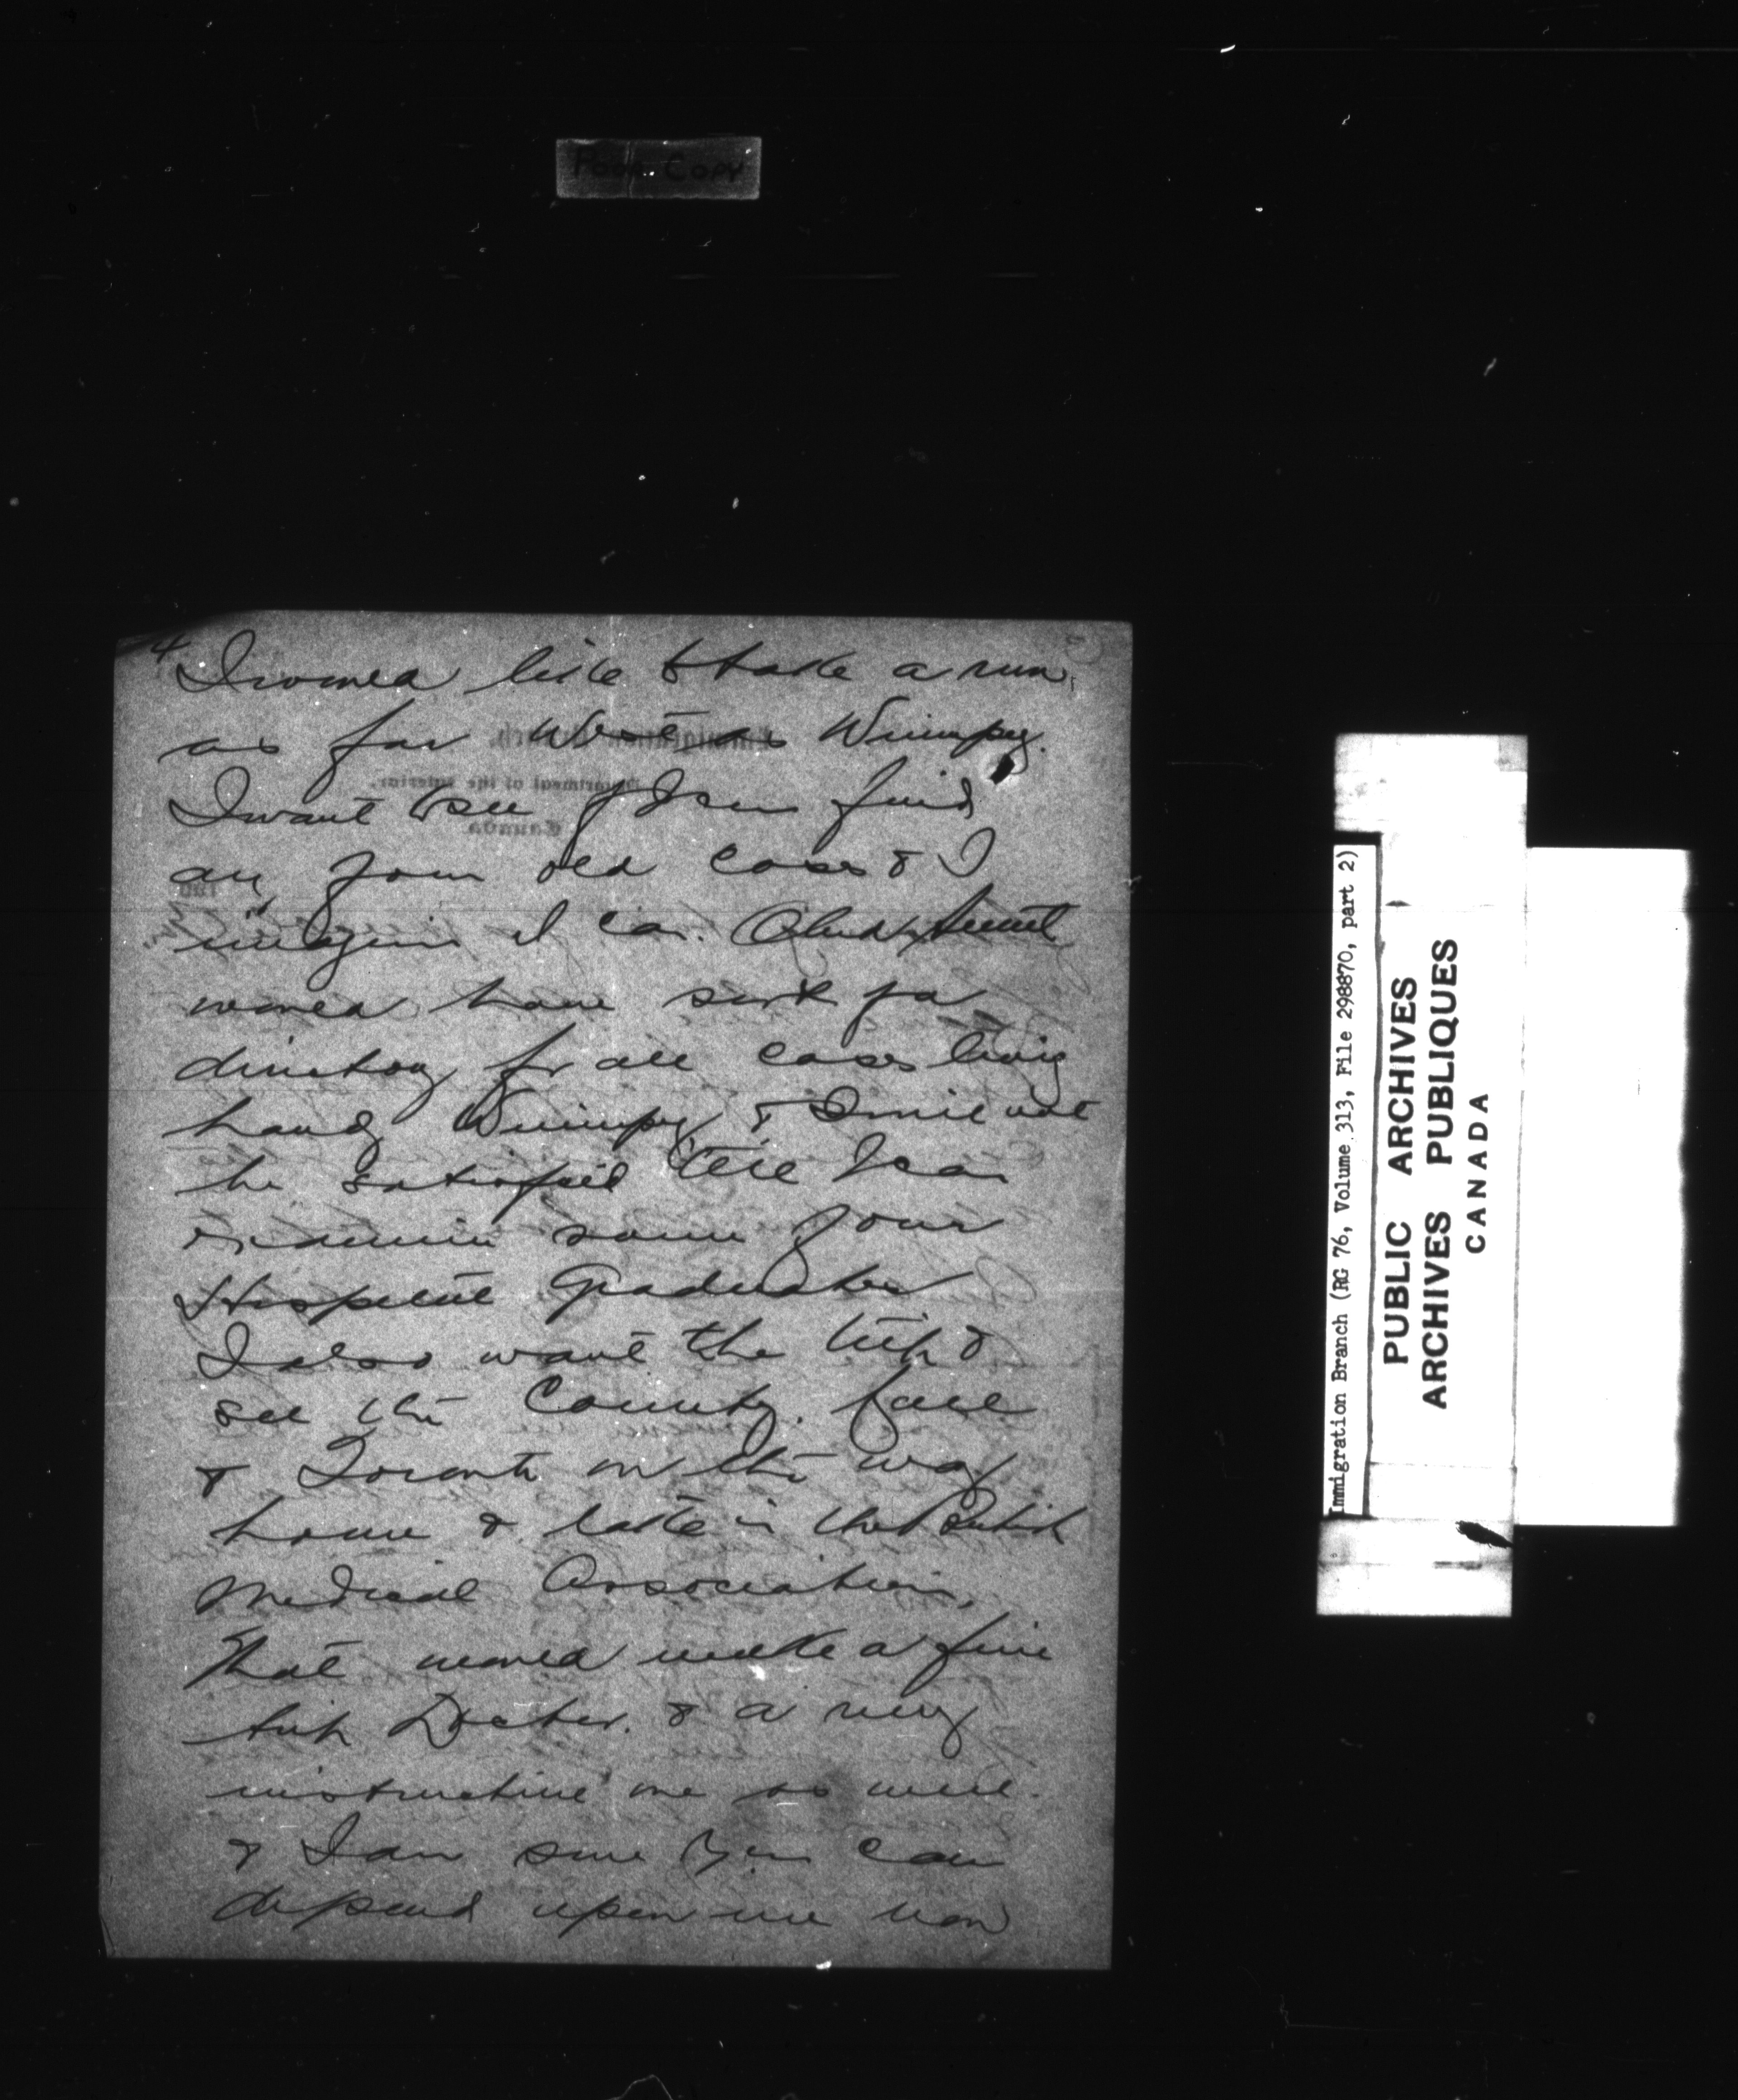 Poor Copy
4
I would like to take a run
as far West as Winnipeg.
I want to see if I can find
any your old cases & I
imagine I can. Obed Smith
would have sent for
directory for all cases living
handy Winnipeg & I will not
be satisfied till I can
examine some your
Hospital Graduates
I also want the trip to
see the Country. Call
at Toronto on the way
home & take in the British
Medical Association.
That would make a fine
trip Doctor. & a very
instructive one as well.
& I am sure you can
depend upon me now
Immigration Branch (RG 76, Volume 313, File 298870, part 2)
PUBLIC ARCHIVES
ARCHIVES PUBLIQUES
CANADA